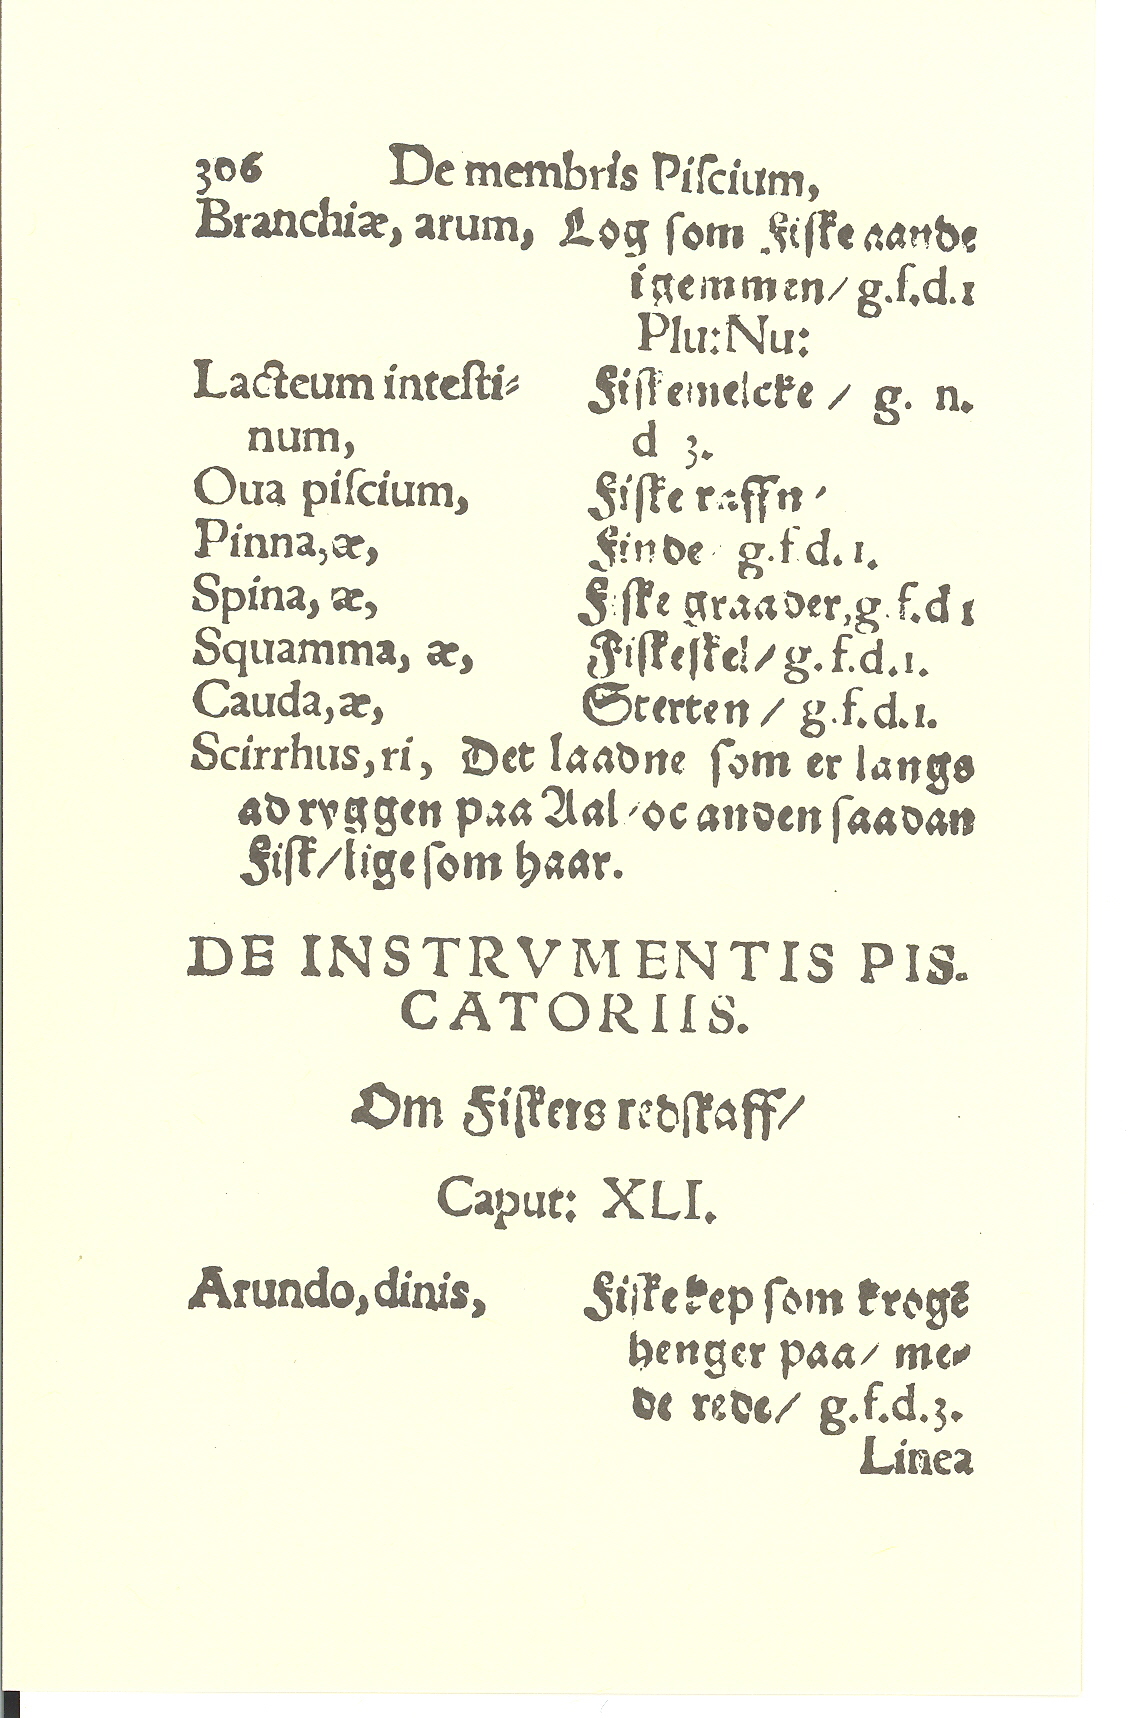 306 De membris Piſcium,
Branchiæ, arum, Log ſom Fiſke aande
igemmen/ g.f.d.1
Plu: Nu:
Lacteum inteſti-
num,
Fiſkemelcke / g. n.
d 3.
Oua piſcium, Fiſke raffn /
Pinna, æ, Finde g.f d. 1.
Spina, æ, Fiſke graader, g f.d 1
Squamma, æ, Fiſkeſkel/ g. f.d.1.
Cauda, æ, Sterten / g.f.d.1.
Scirrhus, ri, Det laadne ſom er langs
ad ryggen paa Aal / oc anden ſaadan
Fiſk/ lige ſom haar.
DE INSTRVMENTIS PIS.
CATORIIS.
Om Fiſkers redſkaff/
Caput: XLI.
Arundo, dinis, Fiſke kep ſom krogẽ
henger paa/ me-
de rede/ g.f.d.3.
Linea